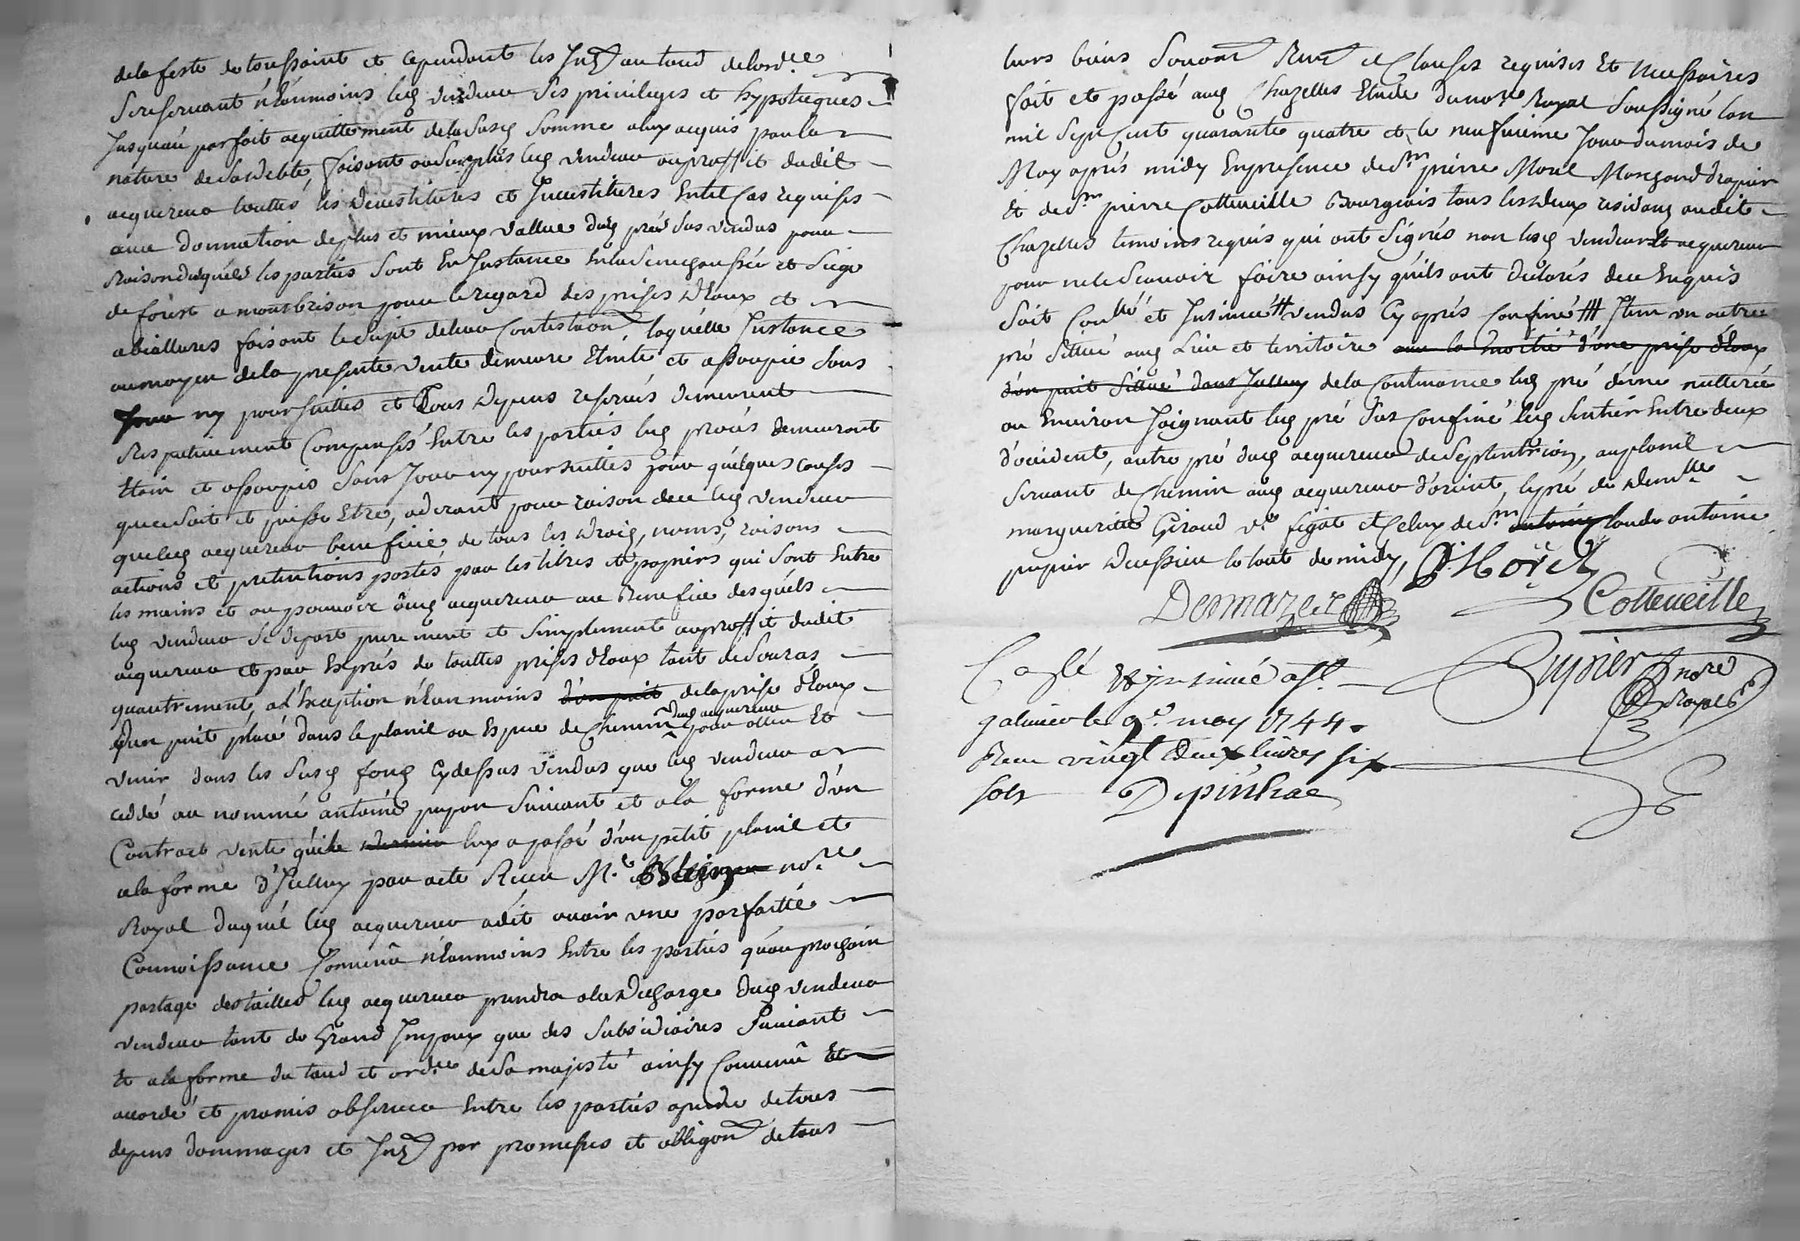 dela feste de toussaint et cependant les Jnts au taud delord.ce
Se reservant néanmoins led. vendeur ses privileges et hypoteques
Jusquau parfait acquittement dela susd. somme a luy acquis par la
nature de sa debte, faisant au surplus led. vendeur au proffit dudit
acquereur touttes les Devestitures et Jnvestitures En tel cas requises
avec donnation de plus et mieux vallue dud. pré sus vendus pour
Raison duquel les parties sont En Jnstance En la Senechaussée et Siege
de forest a montbrison pour le regard des prises d'Eaux et
abiallures faisant le sujet de leur Contestaon laquelle Jnstance
au moyen dela presente vente demeure Eteinte et assoupie sans
Jour ny poursuittes et Tous depens reservés demeurent
Respectivement Compensés Entre les parties led. procés demeurant
Etein et assoupis sans Jour ny poursuittes pour quelques causes
que ce soit et puisse Etre, aderant pour raison de ce led. vendeur
que led. acquereur beneficie de tous les droits, noms, raisons
actions et pretentions portés par les titres et papiers qui sont Entre
les mains et au pouvoir dud. acquereur au Benefice desquels
led. vendeur se depart purement et simplement au proffit dudit
acquereur et par Exprés de touttes prises d'Eaux tant de Souras
qu'autrement, a l'Exception néanmoins d'un puit dela prise d'Eaux
d'un puit placé dans le planil ou Espece de chemin dud. acquereur pour aller Et
venir dans les susd. fond cydessus vendus que led. vendeur a
ceddé au nommé antoine pupier suivant et a la forme d'un
Contract vente qu'il luy a passé d'un petit planil et
a la forme d'Jcelluy par acte Receu Me no.re
Royal duquel led. acquereur a dit avoir une parfaitte
Connoissance Convenu néanmoins Entre les parties qu'au prochain
partage des tailles led. acquereur prendra a la decharge dud. vendeur
vendeur tant de Grand Jmpaux que des subsidiaires suivant
Et a la forme du taud et ord.ces de sa majesté ainsy Convenu Et
accordé et promis observer Entre les parties a peine de tous
depens dommages et Jnts par promesses et obligaon de tous
leurs biens Soumons Renons et Clauses requises Et necessaires
fait et passé aud. Chazelles Etude du no.re Royal soussigné lan
mil sept cent quarante quatre et le neufvieme Jour du mois de
May aprés midy En presence de Sr pierre Morel Marchand drapier
Et de Sr pierre Cotteveille Bourgeois tous les deux residans audit
Chazelles temoins requis qui ont signés non lesd. vendeur Et acquereur
pour ne le Scavoir faire ainsy qu'ils ont declarés de ce Enquis
Soit Conllé et Jnsinué # vendus Cy aprés Confiné ### Jtem un autre
pré sittué aud. Lieu et territoire avec la moitié d'une prise d'Eaux
d'un puit sittué dans Jcelluy de la Contenance led. pré d'une metterée
ou Environ Joignant led. pré sus Confiné led. sentier Entre deux
d'occident, autre pré dud. acquereur de septentrion, au planil
servant de chemin aud. acquereur d'orient, le pré de dem.lle
margueritte Giraud v.e figat et Celuy de Sr antoine Claude antoine
pupier Dessieu le tout de midy, P Morel
Demazer Cotteveille
Conlé et jnsinué a St Pupier No.re Royal
galmier le 9.e may 1744.
Receu vingt deux livres six
sols Depinhac